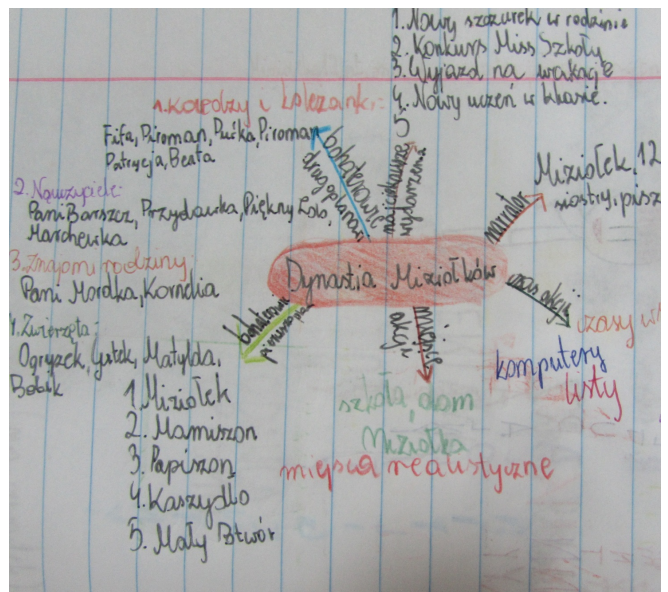 1. Nowy szczurek w rodzinie
2. Konkurs Miss Szkoły
3. Wyjazd na wakacje
4. Nowy uczeń w klasie.
5
najciekawsze
wydarzenia
1. Koledzy i koleżanki:
Fifa, Piroman, Pućka, Piroman
Patrycja, Beata
2. Nauczyciele:
Pani Barszcz, Przydawka, Piękny Lolo,
Marchewka
3. Znajomi rodziny
Pani Mordka, Kornelia
4. Zwierzęta:
Ogryzek, Gutek, Matylda,
Bobik
bohaterowie
drugoplanowi
narrator
Miziołek, 12
siostry, pisz
Dynastia Miziołków
czas akcji
czasy w
komputery
listy
miejsce
akcji
szkoła, dom
Miziołka
miejsca realistyczne
bohaterowie
pierwszoplan
1. Miziołek
2. Mamiszon
3. Papiszon
4. Kaszydło
5. Mały Potwór